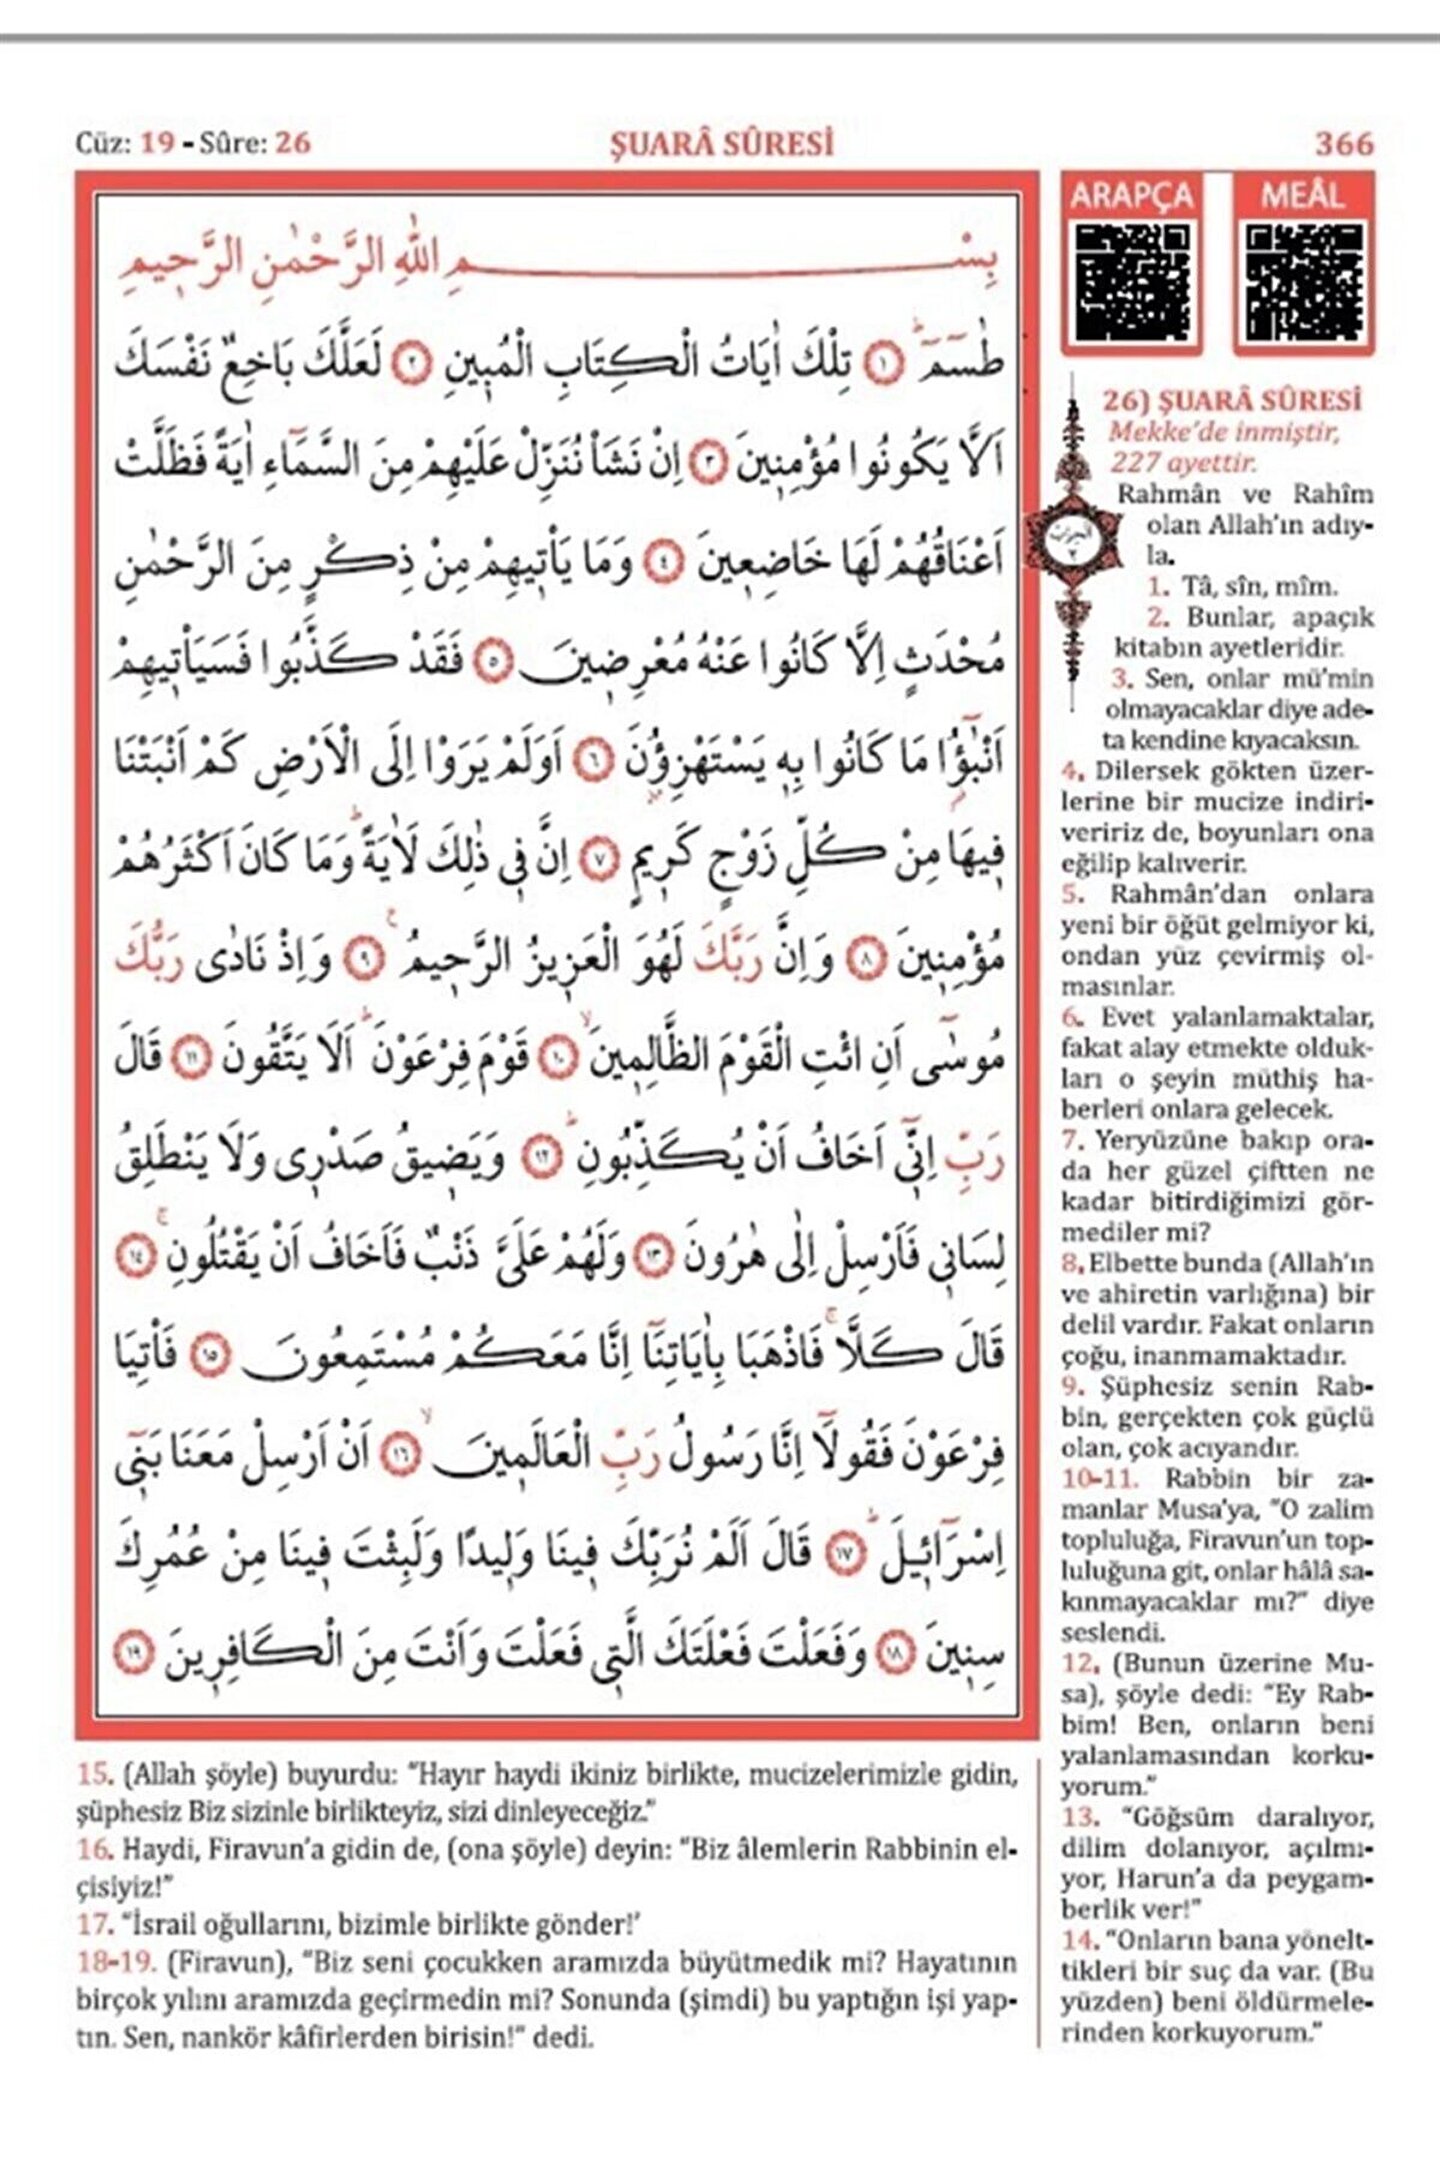 Cüz: 19 - Sûre: 26 ŞUARÂ SÛRESİ 366
بِسْمِ اللّٰهِ الرَّحْمٰنِ الرَّحٖيمِ
طٰسٓمٓ ﴿١﴾ تِلْكَ اٰيَاتُ الْكِتَابِ الْمُبٖينِ ﴿٢﴾ لَعَلَّكَ بَاخِعٌ نَفْسَكَ
اَلَّا يَكُونُوا مُؤْمِنٖينَ ﴿٣﴾ اِنْ نَشَأْ نُنَزِّلْ عَلَيْهِمْ مِنَ السَّمَٓاءِ اٰيَةً فَظَلَّتْ
اَعْنَاقُهُمْ لَهَا خَاضِعٖينَ ﴿٤﴾ وَمَا يَأْتٖيهِمْ مِنْ ذِكْرٍ مِنَ الرَّحْمٰنِ
مُحْدَثٍ اِلَّا كَانُوا عَنْهُ مُعْرِضٖينَ ﴿٥﴾ فَقَدْ كَذَّبُوا فَسَيَأْتٖيهِمْ
اَنْبٰٓؤُا مَا كَانُوا بِهٖ يَسْتَهْزِؤُنَ ﴿٦﴾ اَوَلَمْ يَرَوْا اِلَى الْاَرْضِ كَمْ اَنْبَتْنَا
فٖيهَا مِنْ كُلِّ زَوْجٍ كَرٖيمٍ ﴿٧﴾ اِنَّ فٖى ذٰلِكَ لَاٰيَةًؕ وَمَا كَانَ اَكْثَرُهُمْ
مُؤْمِنٖينَ ﴿٨﴾ وَاِنَّ رَبَّكَ لَهُوَ الْعَزٖيزُ الرَّحٖيمُ ﴿٩﴾ وَاِذْ نَادٰى رَبُّكَ
مُوسٰٓى اَنِ ائْتِ الْقَوْمَ الظَّالِمٖينَ ﴿١٠﴾ قَوْمَ فِرْعَوْنَؕ اَلَا يَتَّقُونَ ﴿١١﴾ قَالَ
رَبِّ اِنّٖٓى اَخَافُ اَنْ يُكَذِّبُونِؕ ﴿١٢﴾ وَيَضٖيقُ صَدْرٖى وَلَا يَنْطَلِقُ
لِسَانٖى فَاَرْسِلْ اِلٰى هٰرُونَ ﴿١٣﴾ وَلَهُمْ عَلَىَّ ذَنْبٌ فَاَخَافُ اَنْ يَقْتُلُونِۚ ﴿١٤﴾
قَالَ كَلَّاۚ فَاذْهَبَا بِاٰيَاتِنَٓا اِنَّا مَعَكُمْ مُسْتَمِعُونَ ﴿١٥﴾ فَأْتِيَا
فِرْعَوْنَ فَقُولَٓا اِنَّا رَسُولُ رَبِّ الْعَالَمٖينَۙ ﴿١٦﴾ اَنْ اَرْسِلْ مَعَنَا بَنٖٓى
اِسْرَٓائٖيلَؕ ﴿١٧﴾ قَالَ اَلَمْ نُرَبِّكَ فٖينَا وَلٖيدًا وَلَبِثْتَ فٖينَا مِنْ عُمُرِكَ
سِنٖينَ ﴿١٨﴾ وَفَعَلْتَ فَعْلَتَكَ الَّتٖى فَعَلْتَ وَاَنْتَ مِنَ الْكَافِرٖينَ ﴿١٩﴾
ARAPÇA MEÂL
26) ŞUARÂ SÛRESİ
Mekke'de inmiştir,
227 ayettir.
Rahmân ve Rahîm
olan Allah'ın adıy-
la.
1. Tâ, sîn, mîm.
2. Bunlar, apaçık
kitabın ayetleridir.
3. Sen, onlar mü'min
olmayacaklar diye ade-
ta kendine kıyacaksın.
4. Dilersek gökten üzer-
lerine bir mucize indiri-
veririz de, boyunları ona
eğilip kalıverir.
5. Rahmân'dan onlara
yeni bir öğüt gelmiyor ki,
ondan yüz çevirmiş ol-
masınlar.
6. Evet yalanlamaktalar,
fakat alay etmekte olduk-
ları o şeyin müthiş ha-
berleri onlara gelecek.
7. Yeryüzüne bakıp ora-
da her güzel çiftten ne
kadar bitirdiğimizi gör-
mediler mi?
8. Elbette bunda (Allah'ın
ve ahiretin varlığına) bir
delil vardır. Fakat onların
çoğu, inanmamaktadır.
9. Şüphesiz senin Rab-
bin, gerçekten çok güçlü
olan, çok acıyandır.
10-11. Rabbin bir za-
manlar Musa'ya, "O zalim
topluluğa, Firavun'un top-
luluğuna git, onlar hâlâ sa-
kınmayacaklar mı?" diye
seslendi.
12. (Bunun üzerine Mu-
sa), şöyle dedi: "Ey Rab-
bim! Ben, onların beni
yalanlamasından korku-
yorum."
13. "Göğsüm daralıyor,
dilim dolanıyor, açılmı-
yor, Harun'a da peygam-
berlik ver!"
14. "Onların bana yönelt-
tikleri bir suç da var. (Bu
yüzden) beni öldürmele-
rinden korkuyorum."
15. (Allah şöyle) buyurdu: "Hayır haydi ikiniz birlikte, mucizelerimizle gidin,
şüphesiz Biz sizinle birlikteyiz, sizi dinleyeceğiz."
16. Haydi, Firavun'a gidin de, (ona şöyle) deyin: "Biz âlemlerin Rabbinin el-
çisiyiz!"
17. "İsrail oğullarını, bizimle birlikte gönder!'
18-19. (Firavun), "Biz seni çocukken aramızda büyütmedik mi? Hayatının
birçok yılını aramızda geçirmedin mi? Sonunda (şimdi) bu yaptığın işi yap-
tın. Sen, nankör kâfirlerden birisin!" dedi.